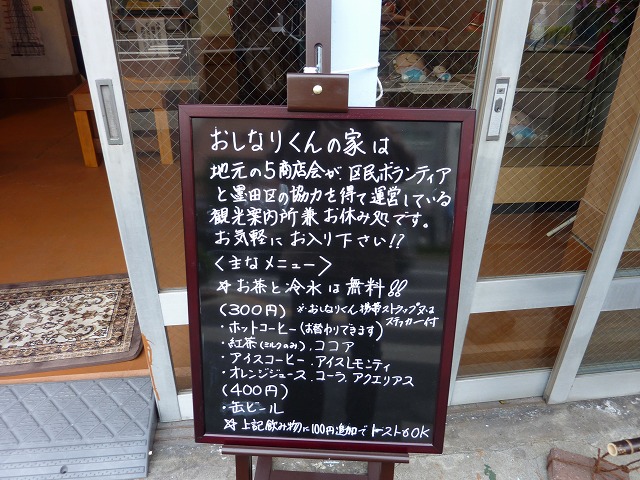 おしなりくんの家は
地元の5商店会が、区民ボランティア
と墨田区の協力を得て運営している
観光案内所兼お休み処です。
お気軽にお入り下さい!?
<主なメニュー>
☆お茶と冷水は無料!!
(300円) ※おしなりくん携帯ストラップ又は
ステッカー付
・ホットコーヒー(お替わりできます)
・紅茶(ミルクのみ)、ココア
・アイスコーヒー、アイスレモンティ
・オレンジジュース、コーラ、アクエリアス
(400円)
・缶ビール
☆上記飲み物に100円追加でトーストもOK